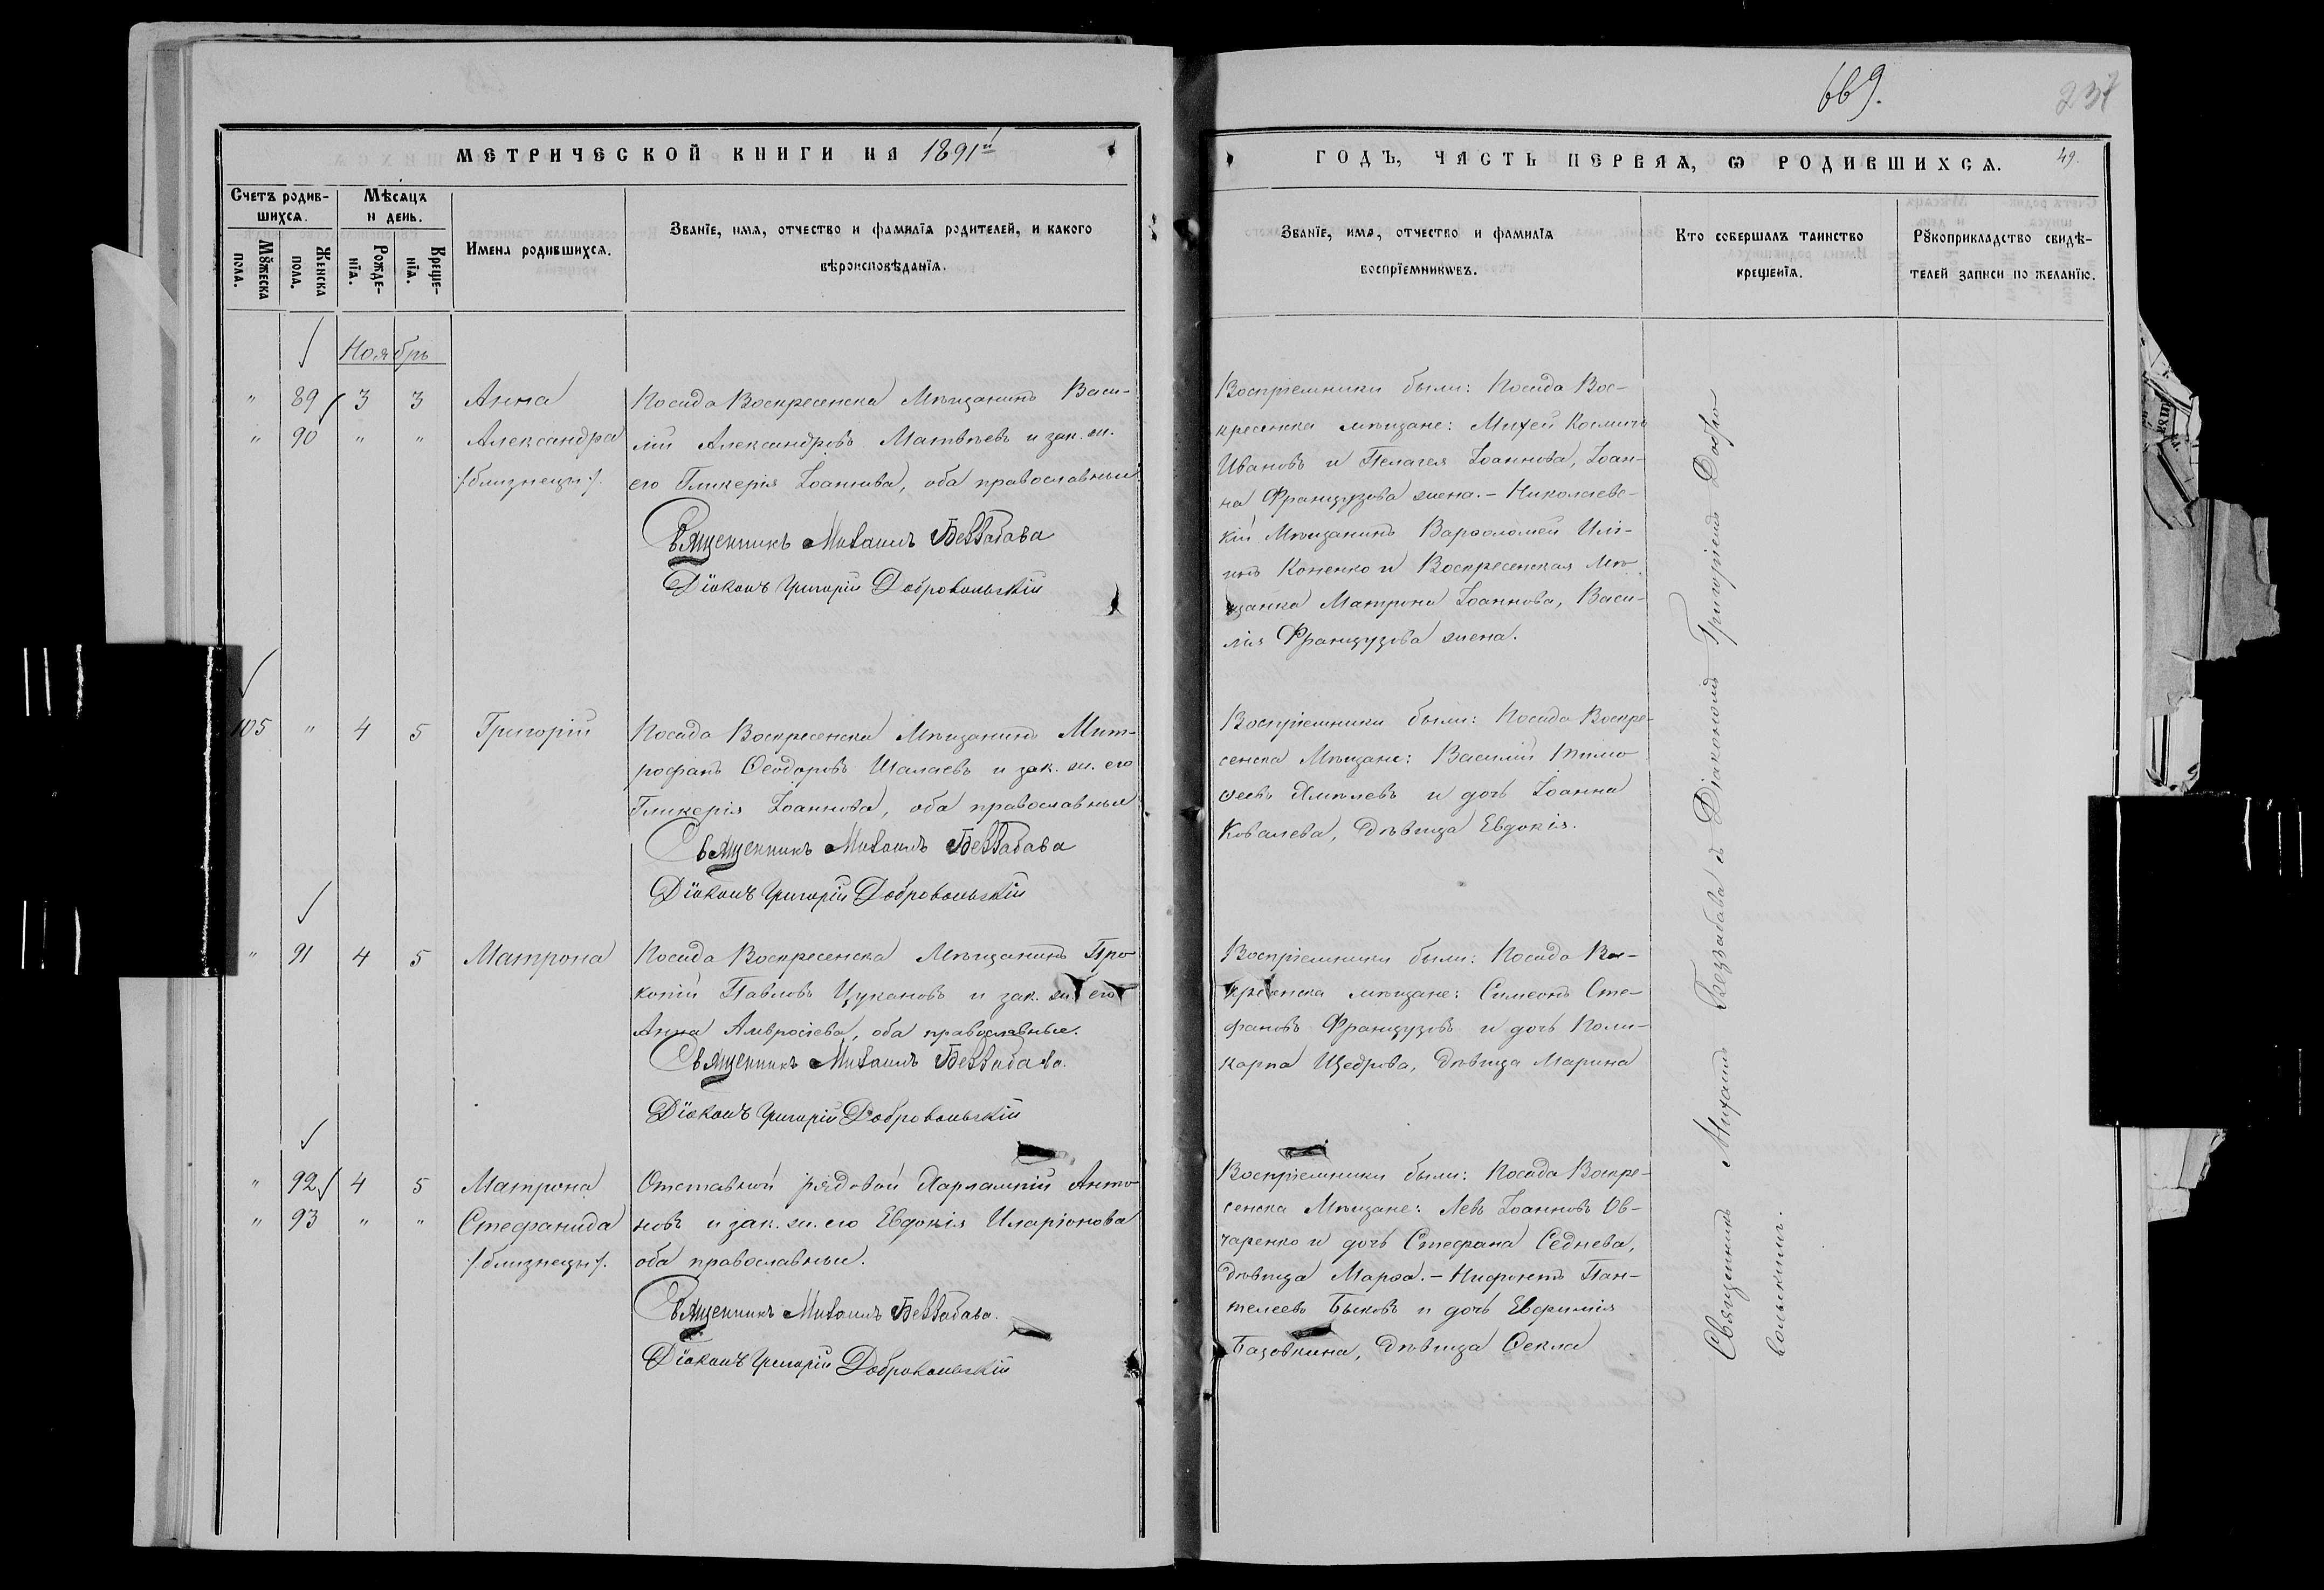 669.
237
МЕТРИЧЕСКОЙ КНИГИ НА 1891й
ГОДЪ, ЧАСТЬ ПЕРВАЯ, Ѡ РОДИВШИХСѦ.
49.
Счетъ родив-
шихсѧ.
Мѣсѧцъ
и день.
Мꙋжеска
пола.
Женска
пола.
Рожде-
нїѧ.
Креще-
нїѧ.
Имена родившихсѧ.
Званїе, имѧ, отчество и фамилїѧ родителей, и какого
вѣроисповѣданїѧ.
Званїе, имѧ, отчество и фамилїѧ
воспрїемникѡвъ.
Кто совершалъ таинство
крещенїѧ.
Рꙋкоприкладство свидѣ-
телей записи по желанїю.
Ноябрь
" 89 3 3 Анна
" 90 " " Александра
/близнецы/.
Посада Воскресенска Мѣщанинъ Васи-
лій Александровъ Матвѣевъ и зак. ж.
его Гликерія Іоаннова, оба православные
Священникъ Михаилъ Беззабава
Діаконъ Григорій Добровольскій
Воспріемники были: Посада Вос-
кресенска мѣщане: Михей Космичъ
Ивановъ и Пелагея Іоаннова, Іоан-
на Французова жена. – Николаевс-
кій Мѣщанинъ Варѳоломей Илі-
инъ Коненко и Воскресенская Мѣ-
щанка Матрона Іоаннова, Васи-
лія Французова жена.
105 " 4 5 Григорій
Посада Воскресенска Мѣщанинъ Мит-
рофанъ Ѳеодоровъ Шалаевъ и зак. ж. его
Гликерія Іоаннова, оба православные
Священникъ Михаилъ Беззабава
Діаконъ Григорій Добровольскій
Воспріемники были: Посада Воскре-
сенска Мѣщане: Василій Тимо
ѳеевъ и дочь Іоанна
Ковалева, дѣвица Евдокія.
" 91 4 5 Матрона
Посада Воскресенска Мѣщанинъ Про
копій Павловъ Цукановъ и зак. ж. его
Анна Амвросіева, оба православные.
Священникъ Михаилъ Беззабава.
Діаконъ Григорій Добровольскій
Воспріемники были: Посада Вос-
кресенска мѣщане: Симеонъ Сте-
фановъ Французовъ и дочь Поли-
карпа Щедрова, дѣвица Марина
" 92 4 5 Матрона
" 93 " " Стефанида
/близнецы/.
Отставной рядовой Харлампій Анто-
новъ и зак. ж. его Евдокія Иларіонова
оба православные.
Священникъ Михаилъ Беззабава.
Діаконъ Григорій Добровольскій
Воспріемники были: Посада Воскре-
сенска Мѣщане: Левъ Іоанновъ Ов-
чаренко и дочь Стефана Седнева,
дѣвица Марѳа. – Нифонтъ Пан-
телеевъ Быковъ и дочь Евфимія
Базовкина, дѣвица Ѳекла
Священникъ Михаилъ Беззабава съ Діакономъ Григоріемъ Добро
вольскимъ.